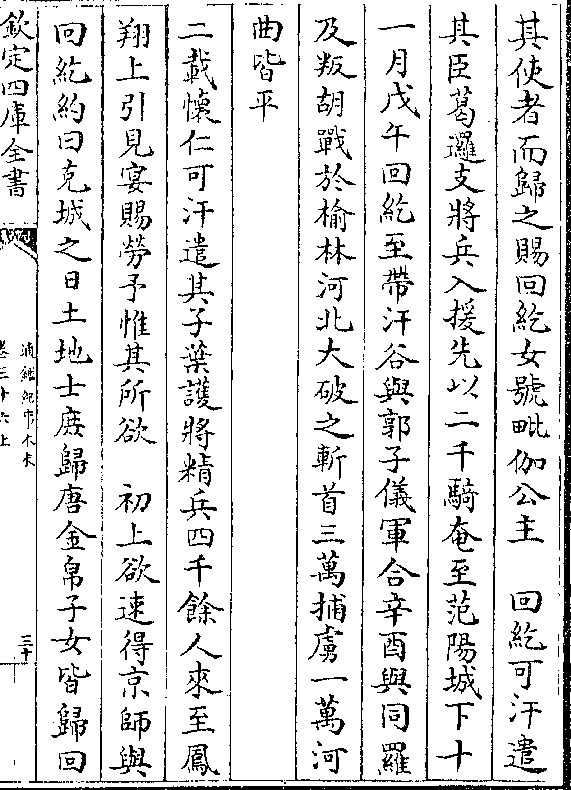 其使者而歸之賜回紇女號毗伽公主　回紇可汗遣
其臣葛邏支將兵入援先以二千騎奄至范陽城下十
一月戊午回紇至帶汗谷與郭子儀軍合辛酉與同羅
及叛胡戰於榆林河北大破之斬首三萬捕虜一萬河
曲皆平
二載懷仁可汗遣其子葉護將精兵四千餘人來至鳳
翔上引見宴賜勞予惟其所欲　初上欲速得京師與
回紇約曰克城之日土地士庶歸唐金帛子女皆歸回
欽定四庫全書
通鑑紀事本末
卷三十六上
三十